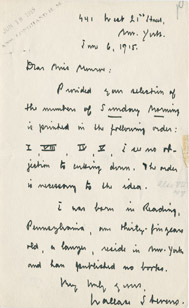 441 West 21st Street,
New York.
June 6, 1915.
Dear Miss Monroe:
Provided your selection
of the numbers of Sunday Morning
is printed in the following order:
I VIII, IV V, I see no ob-
jection to cutting down. The order
is necessary to the idea.
I was born in Reading,
Pennsylvania, am thirty five years
old, a lawyer, reside in New York
and have published no books.
Very truly yours,
Wallace Stevens